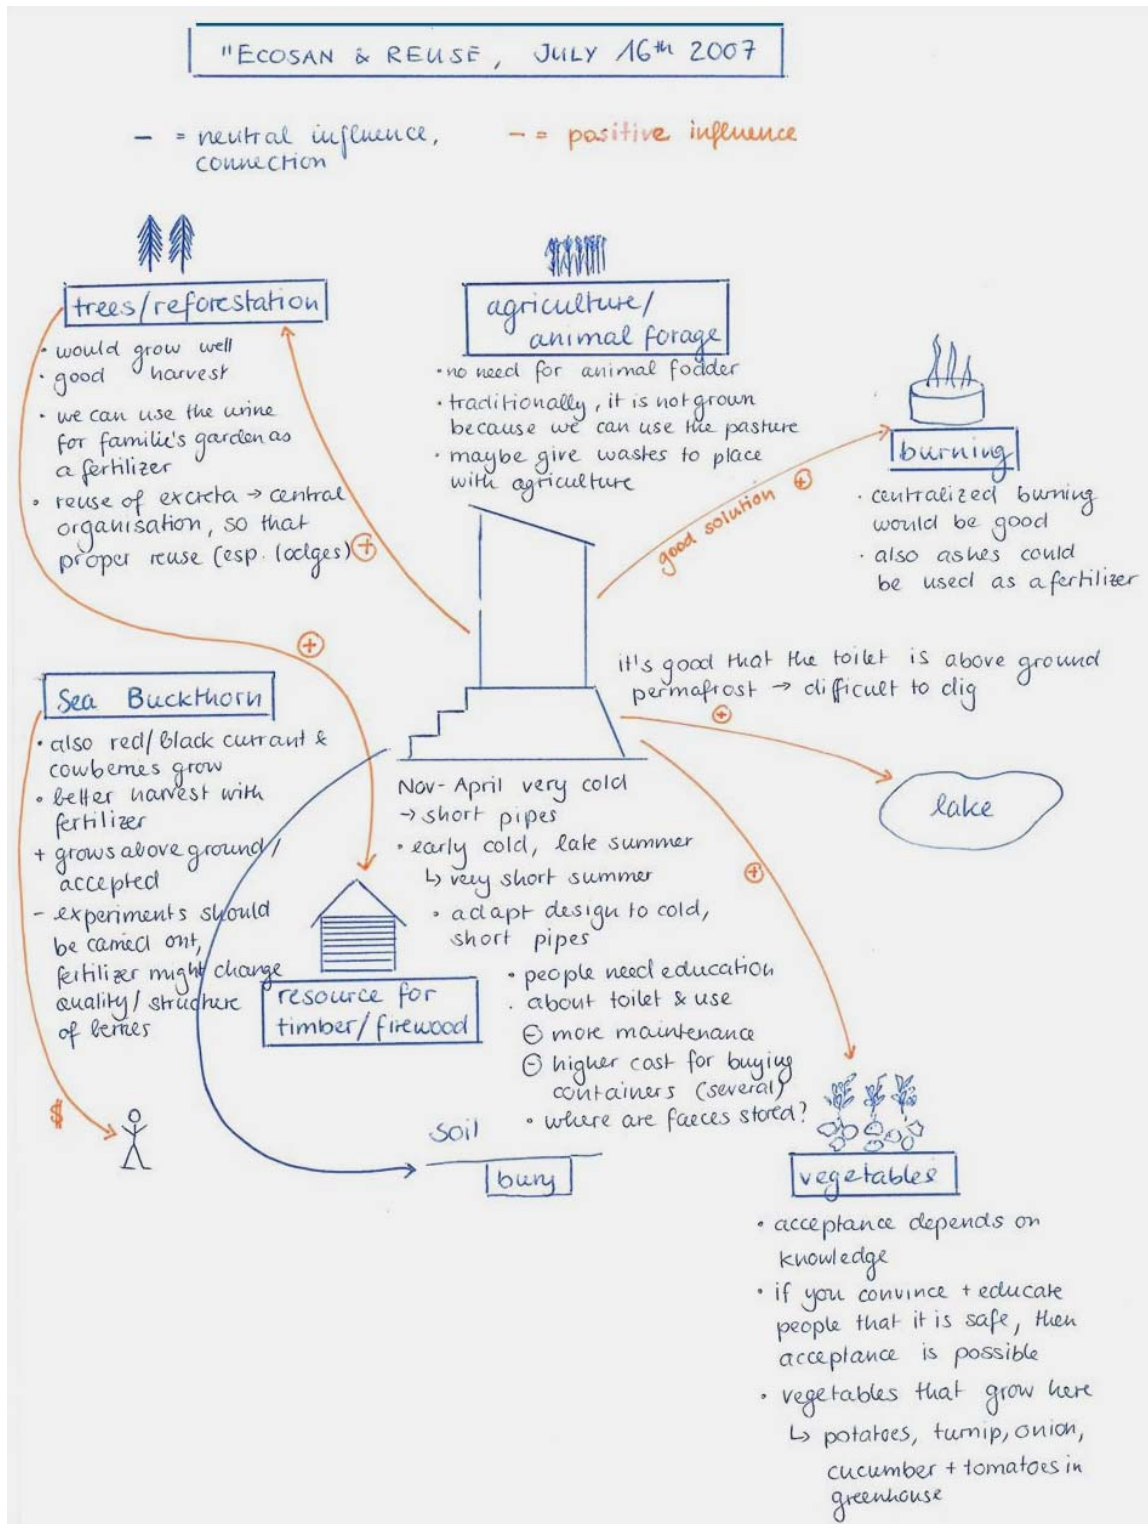 "ECOSAN & REUSE, JULY 16th 2007
— = neutral influence,
connection
— = positive influence
trees/reforestation
· would grow well
· good harvest
· we can use the urine
for familie's garden as
a fertilizer
· reuse of excreta → central
organisation, so that
proper reuse (esp. lodges) +
agriculture/
animal forage
· no need for animal fodder
· traditionally, it is not grown
because we can use the pasture
· maybe give wastes to place
with agriculture
good solution +
burning
· centralized burning
would be good
· also ashes could
be used as a fertilizer
+
it's good that the toilet is above ground
permafrost → difficult to dig
+
lake
Sea Buckthorn
· also red/black currant &
cowberries grow
· better harvest with
fertilizer
+ grows above ground/
accepted
- experiments should
be carried out,
fertilizer might change
quality/structure
of berries
$
Nov-April very cold
→ short pipes
· early cold, late summer
↳ very short summer
· adapt design to cold,
short pipes
· people need education
· about toilet & use
⊖ more maintenance
⊖ higher cost for buying
containers (several)
· where are faeces stored?
+
resource for
timber/firewood
soil
bury
vegetables
· acceptance depends on
knowledge
· if you convince + educate
people that it is safe, then
acceptance is possible
· vegetables that grow here
↳ potatoes, turnip, onion,
cucumber + tomatoes in
greenhouse